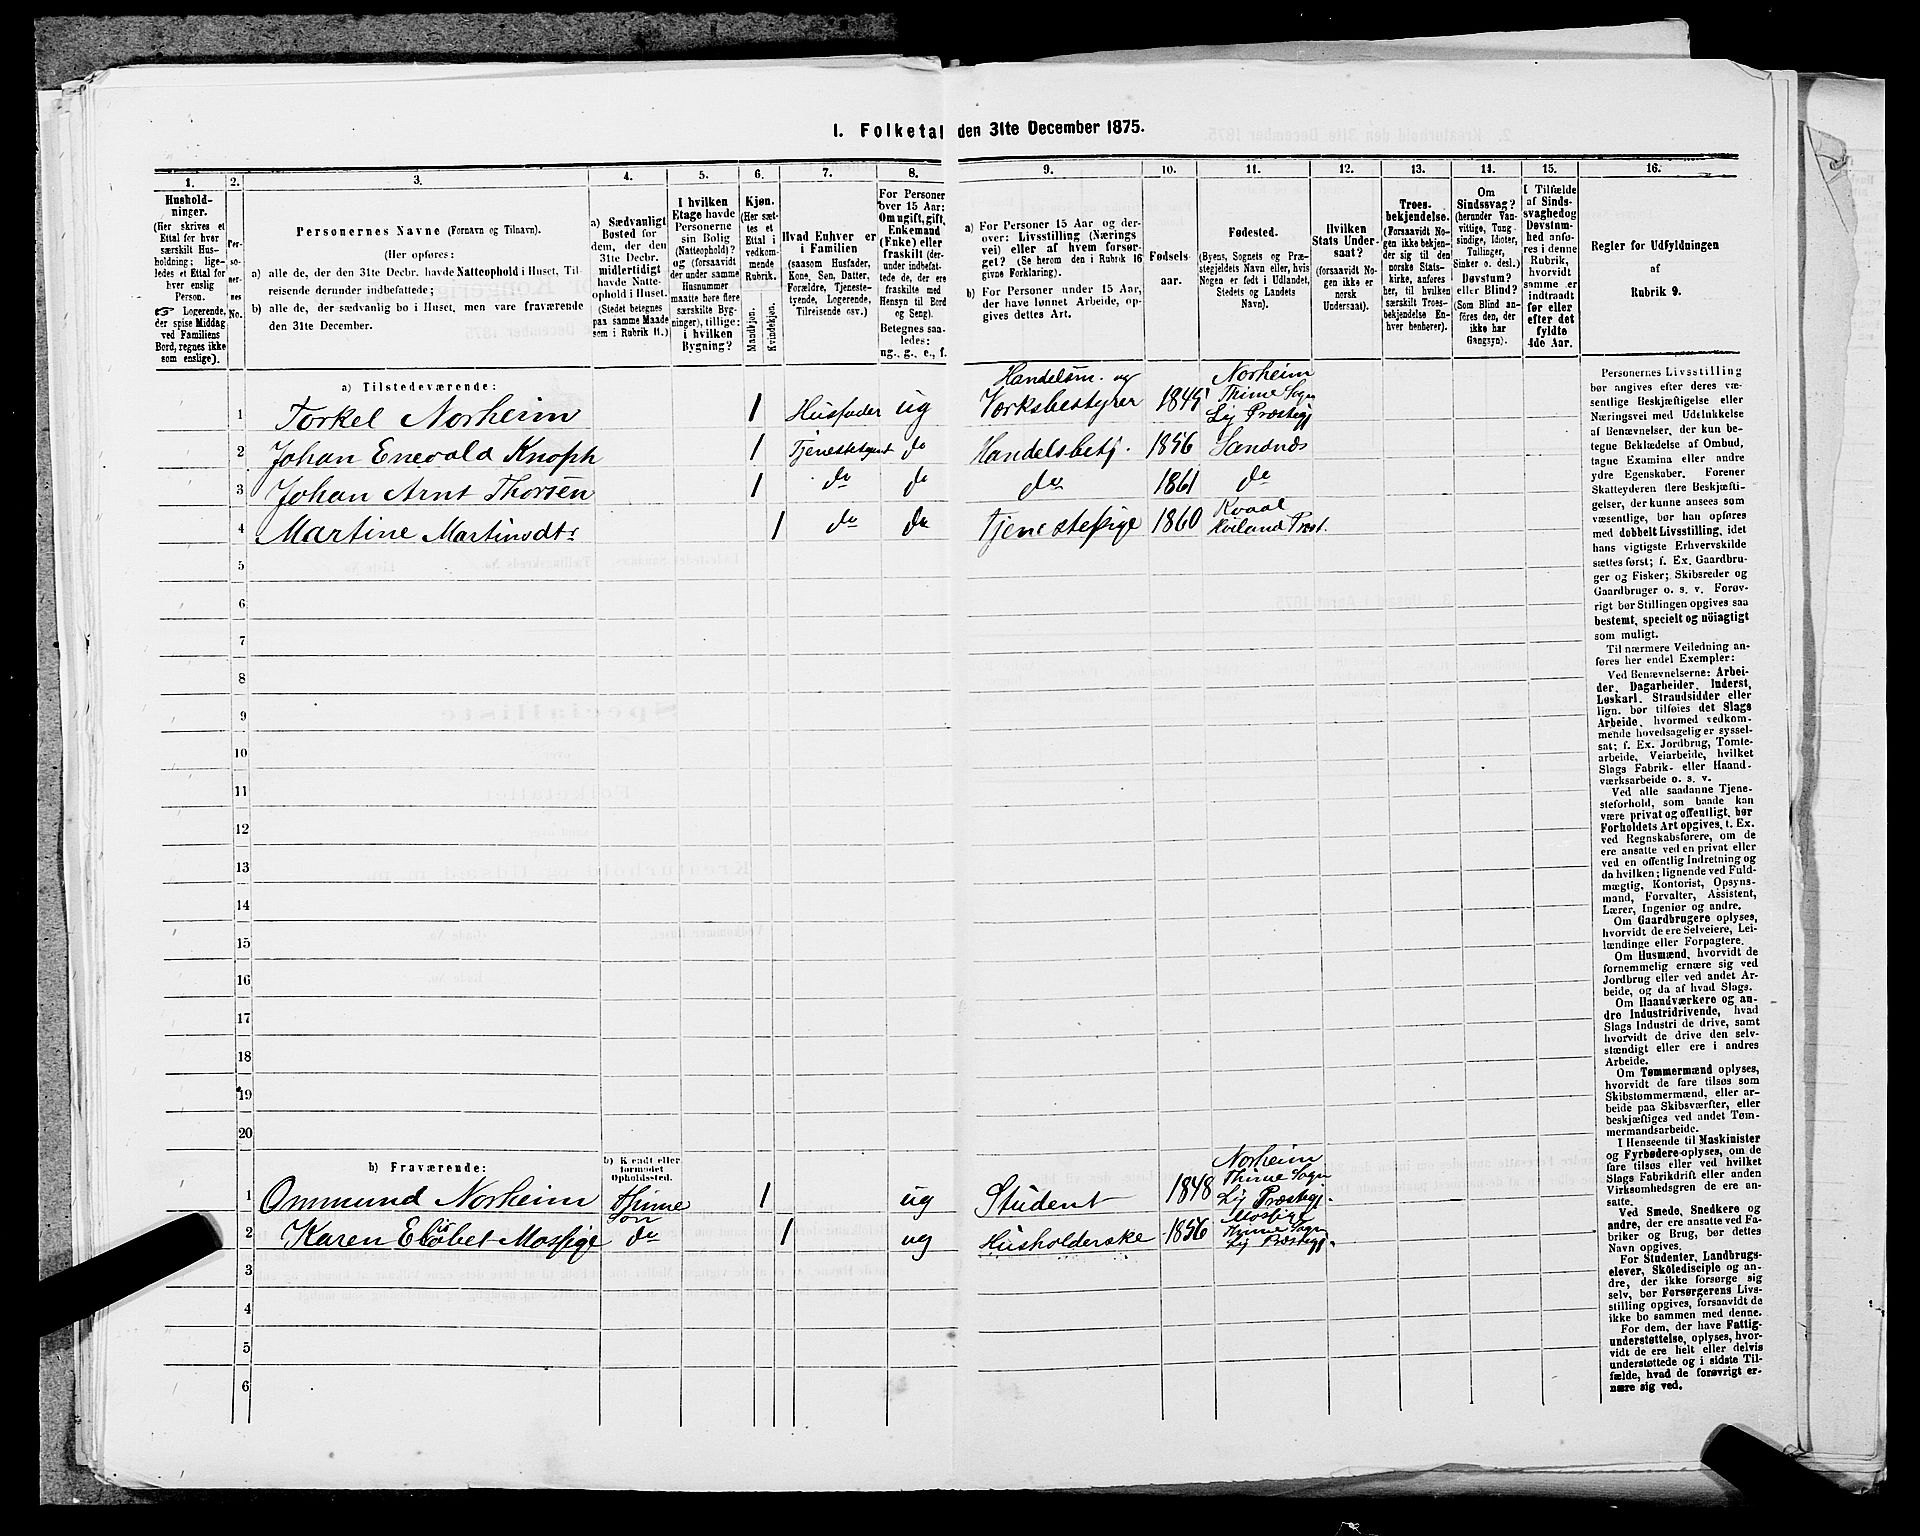 1. Folketal den 31te December 1875.
1.
Hushold-
ninger.
(Her skrives et
Ettal for hver
særskilt Hus-
holdning; lige-
ledes et Ettal for
hver enslig
Person.
☞ Logerende,
der spise Middag
ved Familiens
Bord, regnes ikke
som enslige).
2.
Per-
so-
ner-
nes
No.
3.
Personernes Navne (Fornavn og Tilnavn).
(Her opføres:
a) alle de, der den 31te Decbr. havde Natteophold i Huset, Til-
reisende derunder indbefattede;
b) alle de, der sædvanlig bo i Huset, men vare fraværende
den 31te December.
4.
a) Sædvanligt
Bosted for
dem, der den
31te Decbr.
midlertidigt
havde Natte-
ophold i Huset.
(Stedet betegnes
paa samme Maade
som i Rubrik 11.)
5.
I hvilken
Etage havde
Personerne
sin Bolig
(Natteophold)?
og (forsaavidt
der under samme
Husnummer
maatte høre flere
særskilte Byg-
ninger), tillige:
i hvilken
Bygning?
6.
Kjøn.
(Her sæt-
tes et
Ettal i
vedkom-
mende
Rubrik.
Mandkjøn.
Kvindekjøn.
7.
Hvad Enhver er
i Familien
(saasom Husfader,
Kone, Søn, Datter,
Forældre, Tjeneste-
tyende, Logerende,
Tilreisende osv.)
8.
For Personer
over 15 Aar:
Om ugift, gift,
Enkemand
(Enke) eller
fraskilt (der-
under indbefat-
tede de, der ere
fraskilte med
Hensyn til Bord
og Seng).
Betegnes saa-
ledes:
ug., g., e., f.
9.
a) For Personer 15 Aar og der-
over: Livsstilling (Nærings
vei) eller af hvem forsør-
get? (Se herom den i Rubrik 16
givne Forklaring).
b) For Personer under 15 Aar,
der have lønnet Arbeide, op-
gives dettes Art.
10.
Fødsels-
aar.
11.
Fødested.
(Byens, Sognets og Præ-
stegjeldets Navn eller, hvis
Nogen er født i Udlandet,
Stedets og Landets
Navn).
12.
Hvilken
Stats Under-
saat?
(forsaavidt No-
gen ikke er
norsk
Undersaat).
13.
Troes-
bekjendelse.
(Forsaavidt No-
gen ikke bekjen-
der sig til den
norske Stats-
kirke, anføres
her, til hvilken
særskilt Troes-
bekjendelse En-
hver benhører).
14.
Om
Sindssvag?
(herunder Van-
vittige, Tung-
sindige, Idioter,
Tullinger,
Sinker o. desl.)
Døvstum?
eller Blind?
(Som Blind an-
føres den, der
ikke har
Gangsyn).
15.
I Tilfælde
af Sinds-
svaghed og
Døvstum-
hed anfø-
res i denne
Rubrik,
hvorvidt
samme er
indtraadt
før eller
efter det
fyldte
4de Aar.
16.
Regler for Udfyldningen
af
Rubrik 9.
a) Tilstedeværende:
1 Torkel Norheim 1 Husfader ug Handelsm. og
Værksbestyrer 1845 Norheim
Thime Sogn
Lij Præstegj
2 Johan Enevald Knoph 1 Tjenestetyent do Handelsbetj. 1856 Sandnæs
3 Johan Arnt Thorsen 1 do do do 1861 do
4 Martine Martinsdtr 1 do do Tjenestepige 1860 Kvaal
Hviland Præst.
5
6
7
8
9
10
11
12
13
14
15
16
17
18
19
20
b) Fraværende:
b) Kjendt eller
formodet
Opholdssted.
1 Ommund Norheim Thime
Son 1 ug Student 1848 Norheim
Thime Sogn
Lij Præstegj.
2 Karen Elisbet Mossige do 1 ug Husholderske 1856 Mossige
Thime Sogn
Lij Præstegj.
3
4
5
6
Personernes Livsstilling
bør angives efter deres væ-
sentlige Beskjæftigelse eller
Næringsvei med Udelukkelse
af Benævnelser, der kun be-
tegne Beklædelse af Ombud,
tagne Examina eller andre
ydre Egenskaber. Forener
Skatteyderen flere Beskjæfti-
gelser, der kunne ansees som
væsentlige, bør han opføres
med dobbelt Livsstilling, idet
hans vigtigste Erhvervskilde
sættes først; f. Ex. Gaardbru-
ger og Fisker; Skibsreder og
Gaardbruger o. s. v. Forøv-
rigt bør Stillingen opgives saa
bestemt, specielt og nöiagtigt
som muligt.
Til nærmere Veiledning an-
føres her endel Exempler:
Ved Benævnelserne: Arbei-
der, Dagarbeider, Inderst,
Løskarl, Strandsidder eller
lign. bør tilføies det Slags
Arbeide, hvormed vedkom-
mende hovedsagelig er syssel-
sat; f. Ex. Jordbrug, Tomte-
arbeide, Veiarbeide, hvilket
Slags Fabrik- eller Haand-
værksarbeide o. s. v.
Ved alle saadanne Tjene-
steforhold, som baade kan
være privat og offentligt, bør
Forholdets Art opgives, t. Ex.
ved Regnskabsførere, om de
ere ansatte ved en privat eller
ved en offentlig Indretning og
da hvilken; lignende ved Fuld-
mægtig, Kontorist, Opsyns-
mand, Forvalter, Assistent,
Lærer, Ingeniør og andre.
Om Gaardbrugere oplyses,
hvorvidt de ere Selveiere, Lei-
lændinge eller Forpagtere.
Om Husmænd, hvorvidt de
fornemmelig ernære sig ved
Jordbrug eller ved andet Ar-
beide, og da af hvad Slags.
Om Haandværkere og an-
dre Industridrivende, hvad
Slags Industri de drive, samt
hvorvidt de drive den selv-
stændigt eller ere i andres
Arbeide.
Om Tømmermænd oplyses,
hvorvidt de fare tilsøs som
Skibstømmermænd, eller ar-
beide paa Skibsværfter, eller
beskjæftiges ved andet Tøm-
mermandsarbeide.
I Henseende til Maskinister
og Fyrbødere oplyses, om de
fare tilsøs eller ved hvilket
Slags Fabrikdrift eller anden
Virksomhedsgren de ere an-
satte.
Ved Smede, Snedkere og
andre, der ere ansatte ved Fa-
briker og Brug, bør dettes
Navn opgives.
For Studenter, Landbrugs-
elever, Skoledisciple og an-
dre, der ikke forsørge sig
selv, bør Forsørgerens Livs-
stilling opgives, forsaavidt de
ikke bo sammen med denne.
For dem, der have Fattig-
understøttelse, oplyses, hvor-
vidt de ere helt eller delvis
understøttede og i sidste Til-
fælde, hvad de forøvrigt er-
nære sig ved.